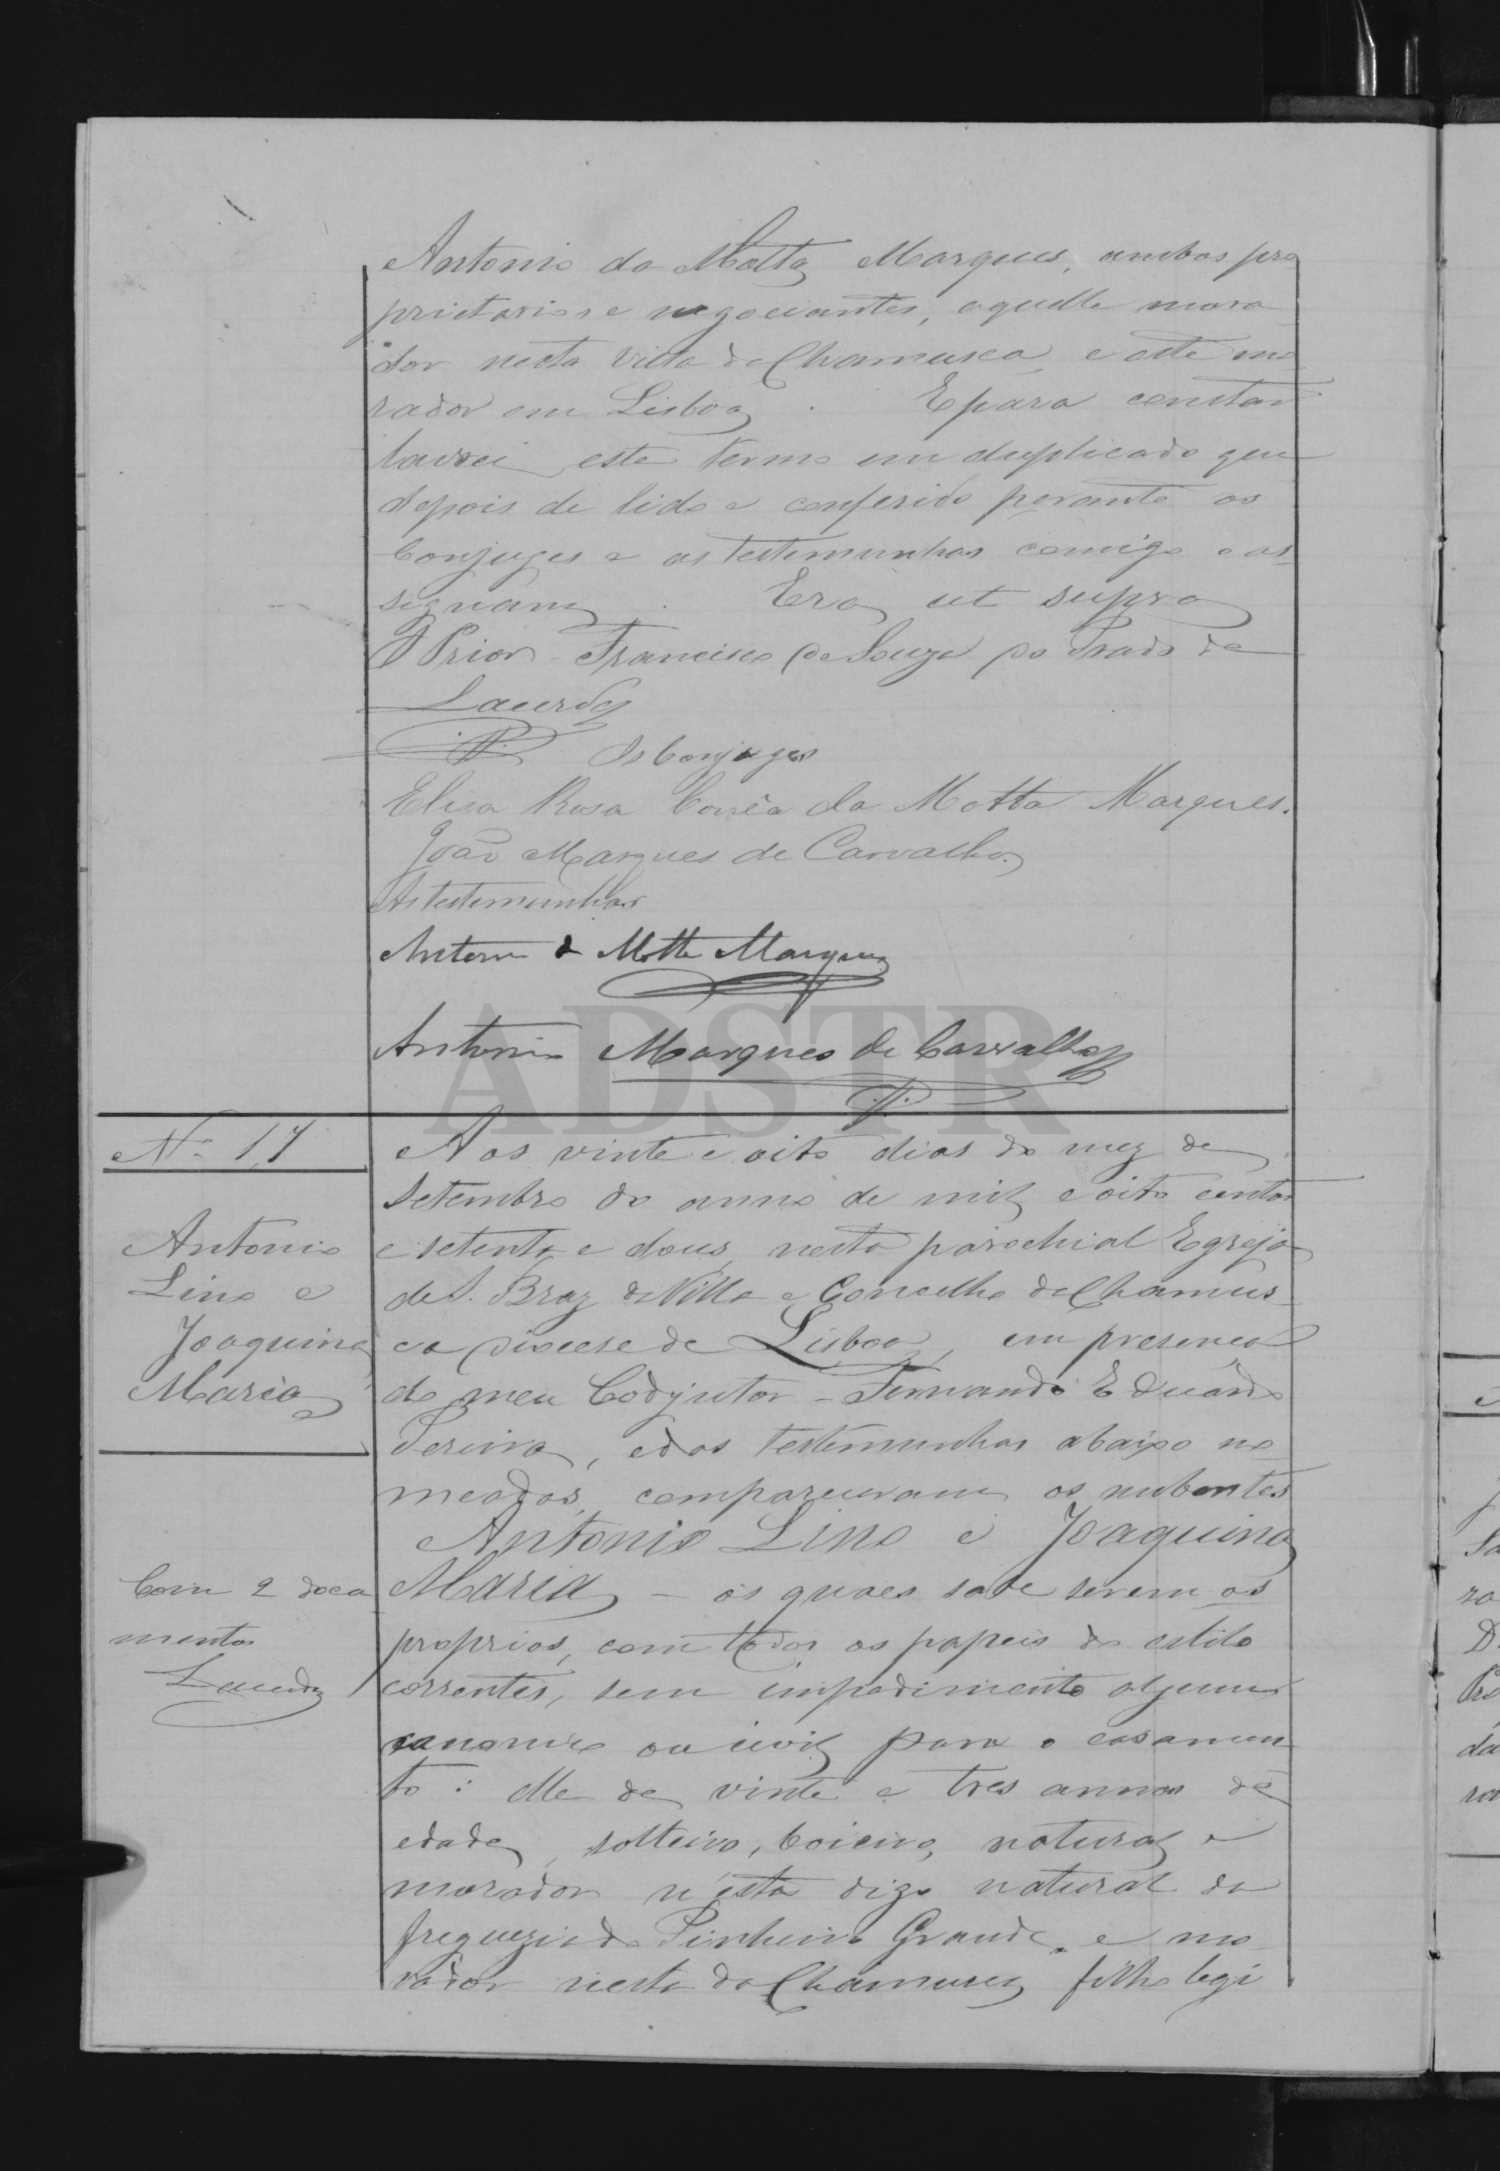 Antonio da Motta Marques, ambos pro
prietarios e negociantes, aquelle mora
dor nesta Villa da Chamusca, e este mo
rador em Lisboa. E para constar
lavrei este termo em duplicado que
depois de lido e conferido perante os
Conjuges e as testemunhas comigo o as
signam. Era ut supra
O Prior Francisco de Souza do Prado de
Lacerda
Os Conjuges
Elisa Rosa Corrêa da Motta Marques.
João Marques de Carvalho
As testemunhas
Antonio da Motta Marques
Antonio Marques de Carvalho
ADSTR
Nº 17
Antonio
Lino e
Joaquina
Maria
Com 2 docu
mentos
Lacerda
Aos vinte e oito dias do mez de
Setembro do anno de mil e oito centos
e setenta e dous, nesta parochial Egreja
de S. Braz da Villa e Concelho da Chamus
ca Diocese de Lisboa, em presença
do meu Codjutor - Fernando Eduardo
Pereira, e das testemunhas abaixo no
meadas, compareceram os nubentes
Antonio Lino e Joaquina
Maria - os quaes sei serem os
proprios, com todos os papeis do estilo
correntes, sem impedimento algum
canonico ou civil para o casamen
to: elle de vinte e tres annos de
edade, solteiro, boieiro, natural e
morador n'esta digo natural da
freguezia do Pinheiro Grande, e mo
rador nesta da Chamusca filho legi